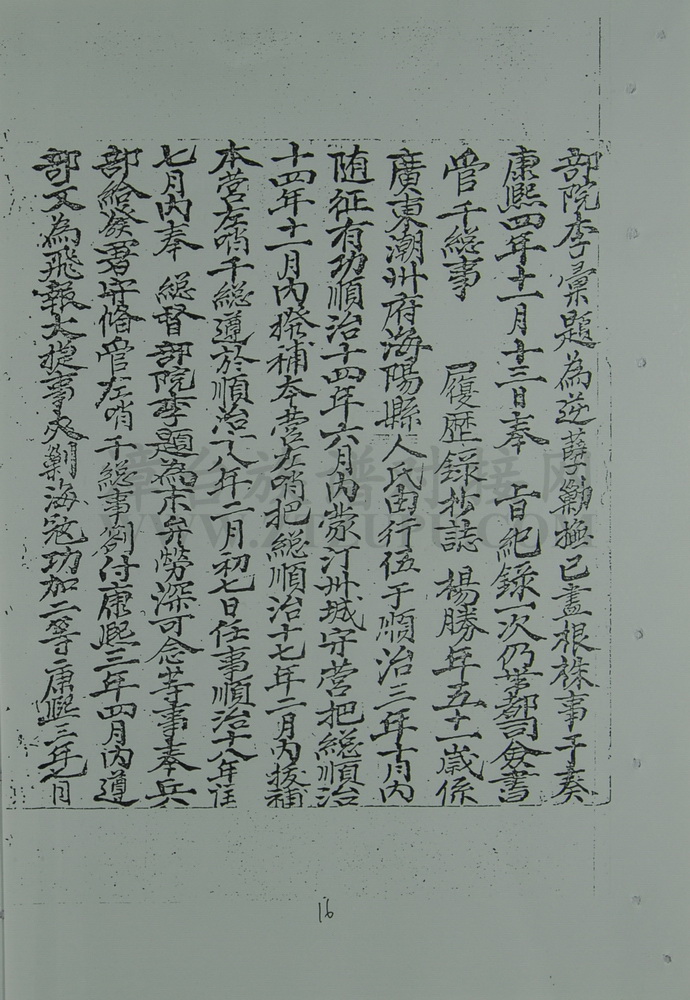 部院李彙題為逆孽勦撫已盡根株事于奏
康熙四年十一月十三日奉 旨紀錄一次仍管都司僉書
管千総事 履歴錄抄誌 楊勝年五十一歲係
廣東潮州府海陽縣人氏由行伍于順治三年十月內
随征有功順治十四年六月內蒙汀州城守营把総順治
十四年十一月內撥補本营左哨把総順治十七年二月內拔補
本营左哨千総遵於順治十八年二月初七日任事順治十八年
七月內奉 総督部院李題為末弁勞深可念等事奉兵
部給劄署守俻管左哨千総事劄付康熙三年四月內遵
部文為飛報大捷事夾勦海冦功加二等康熙三年七月
16